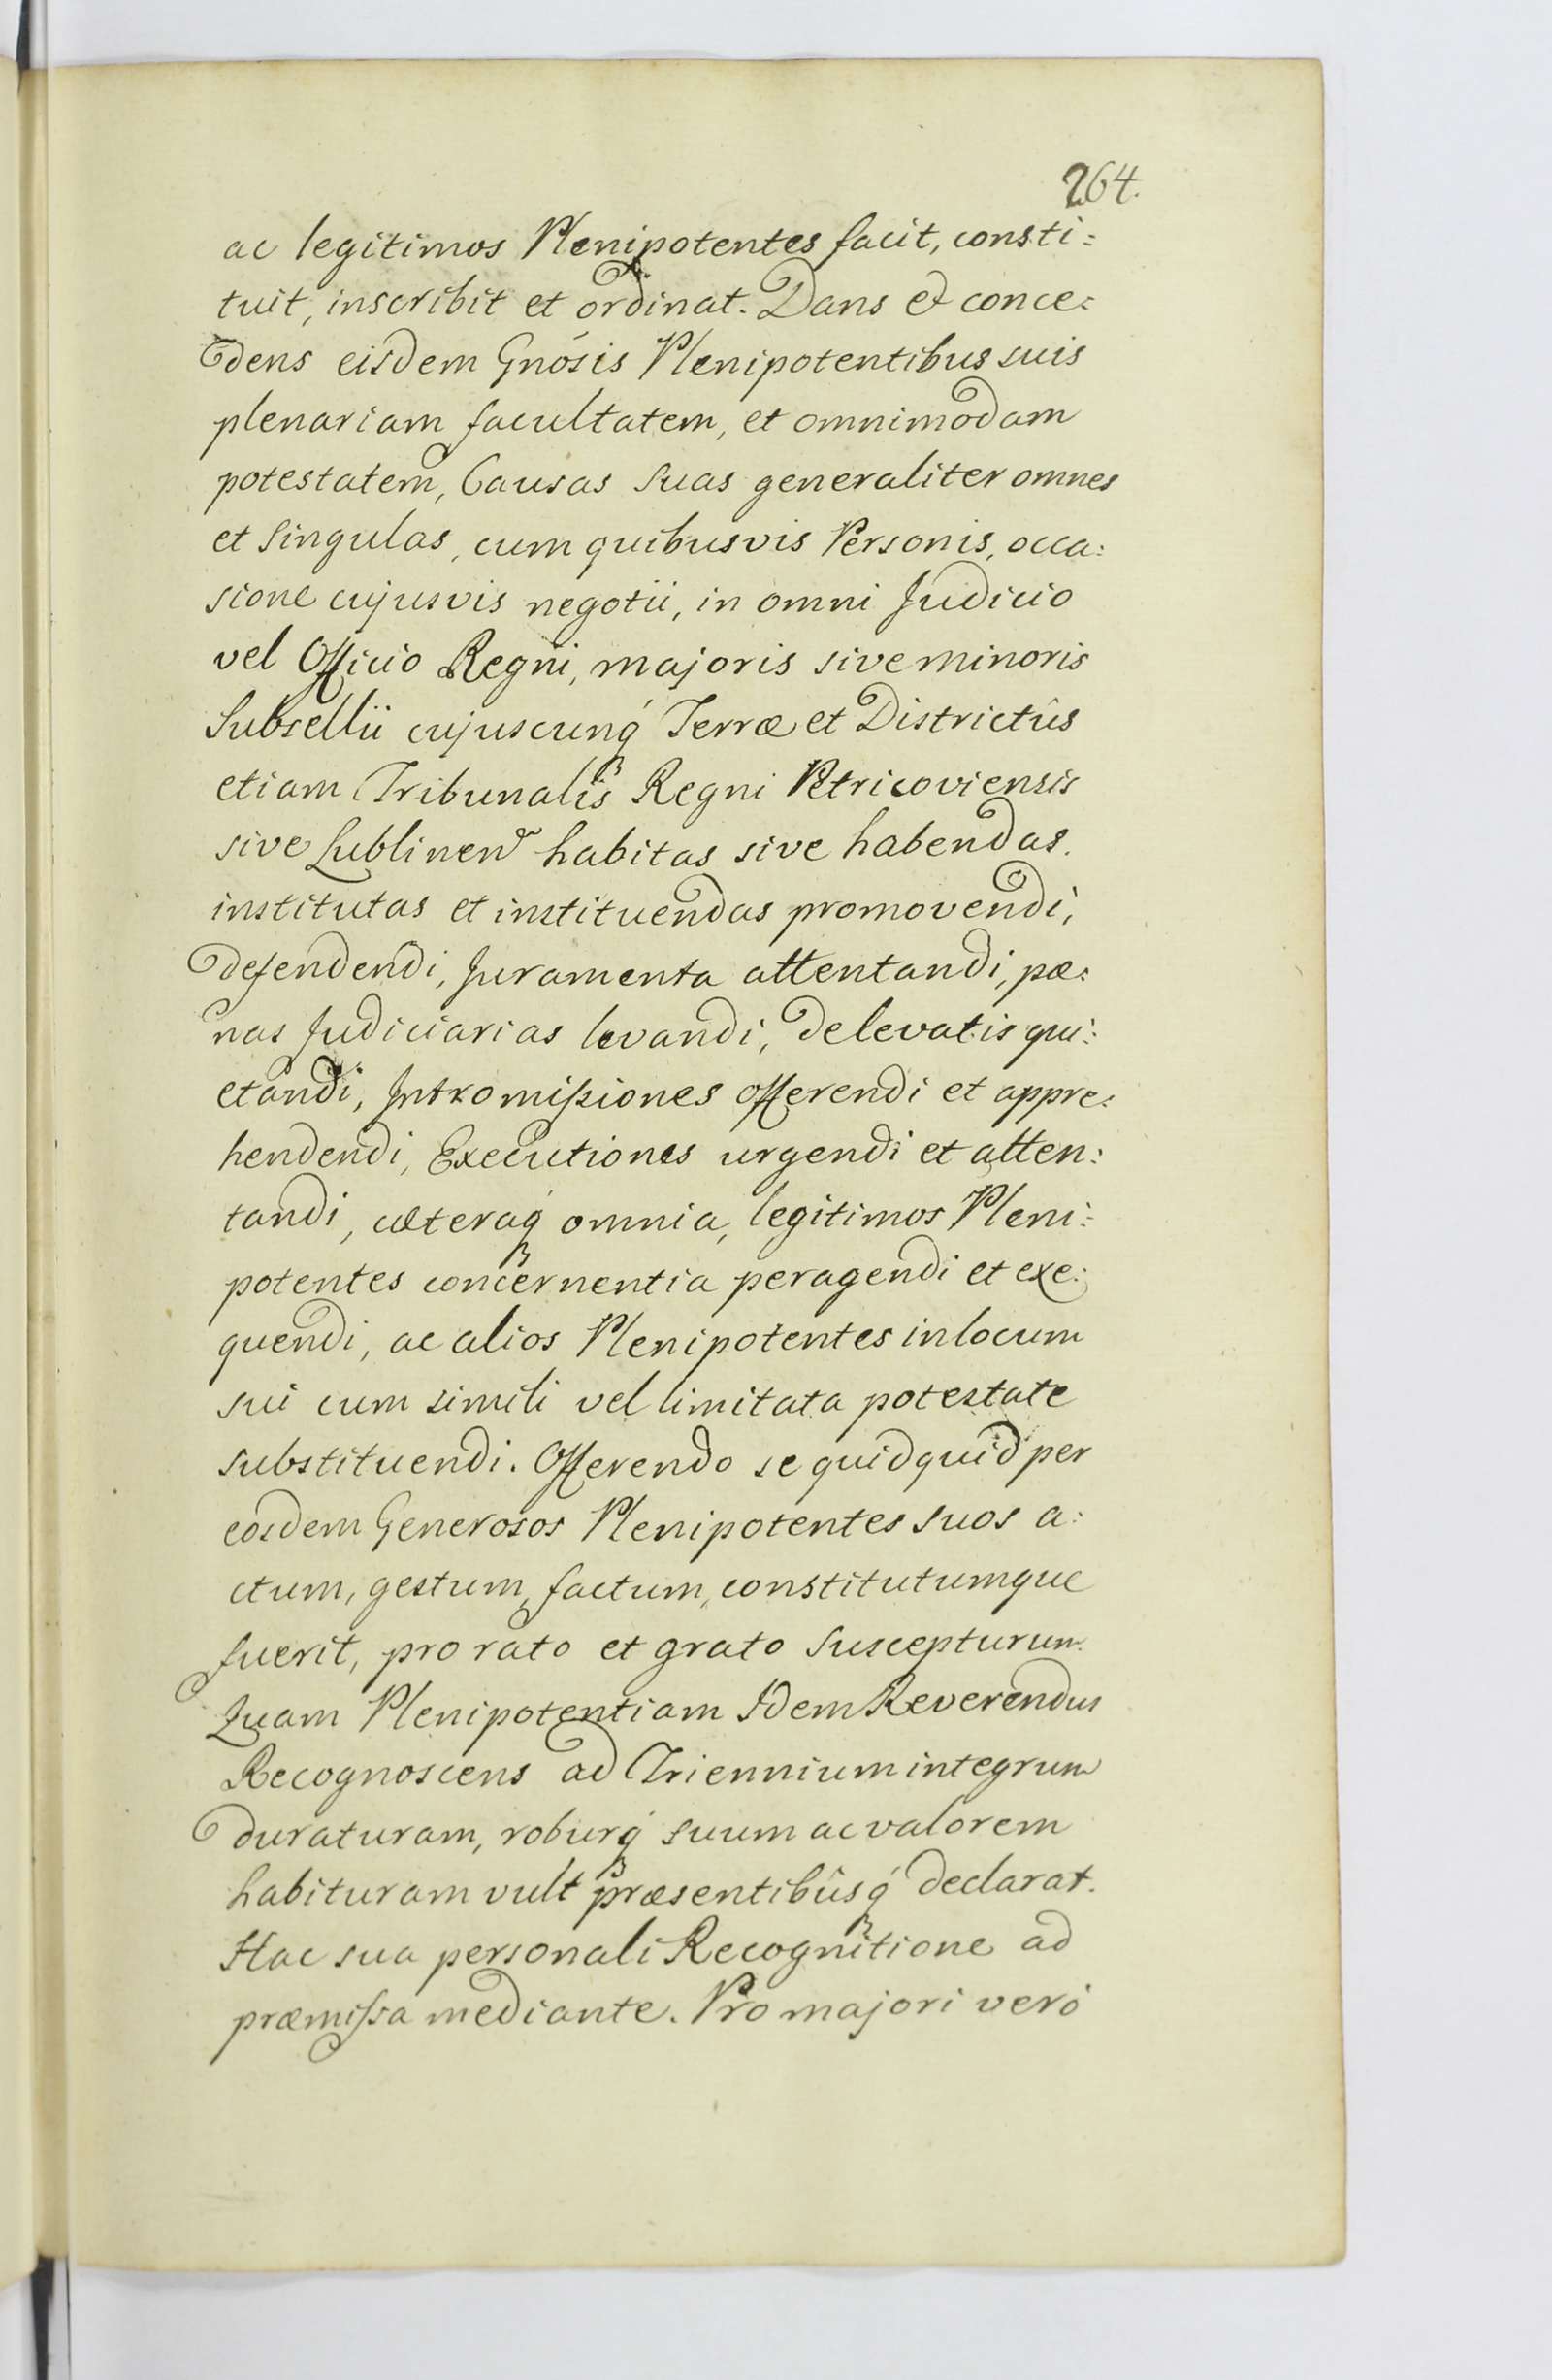 264.
ac legitimos Plenipotentes facit, consti:
tuit, inscribit et ordinat. Dans & conce:
dens eisdem Gnósis Plenipotentibus suis
plenariam facultatem, et omnimodam
potestatem, Causas suas generaliter omnes
et singulas, cum quibusvis Personis, occa:
sione cujusvis negotii, in omni Judicio
vel Officio Regni, majoris sive minoris
Subsellii cujuscunq́ Terræ et Districtûs
etiam Tribunalis Regni Petricoviensis
sive Lublinen habitas sive habendas.
institutas et instituendas promovendi,
defendendi, Juramenta attentandi, pæ:
nas Judiciarias levandi, de levatis qui:
etandi, Intromissiones offerendi et appre:
hendendi, Executiones urgendi et atten:
tandi, cæteraq́ omnia, legitimos Pleni:
potentes concernentia peragendi et exe:
quendi, ac alios Plenipotentes in locum
sui cum simili vel limitata potestate
substituendi. Offerendo se quidquid per
eosdem Generosos Plenipotentes suos a:
ctum, gestum, factum, constitutumque
fuerit, pro rato et grato suscepturum.
Quam Plenipotentiam Idem Reverendus
Recognoscens ad Triennium integrum
duraturam, roburq́ suum ac valorem
habituram vult præsentibûsq́ declarat.
Hac sua personali Recognitione ad
præmissa mediante. Pro majori verò